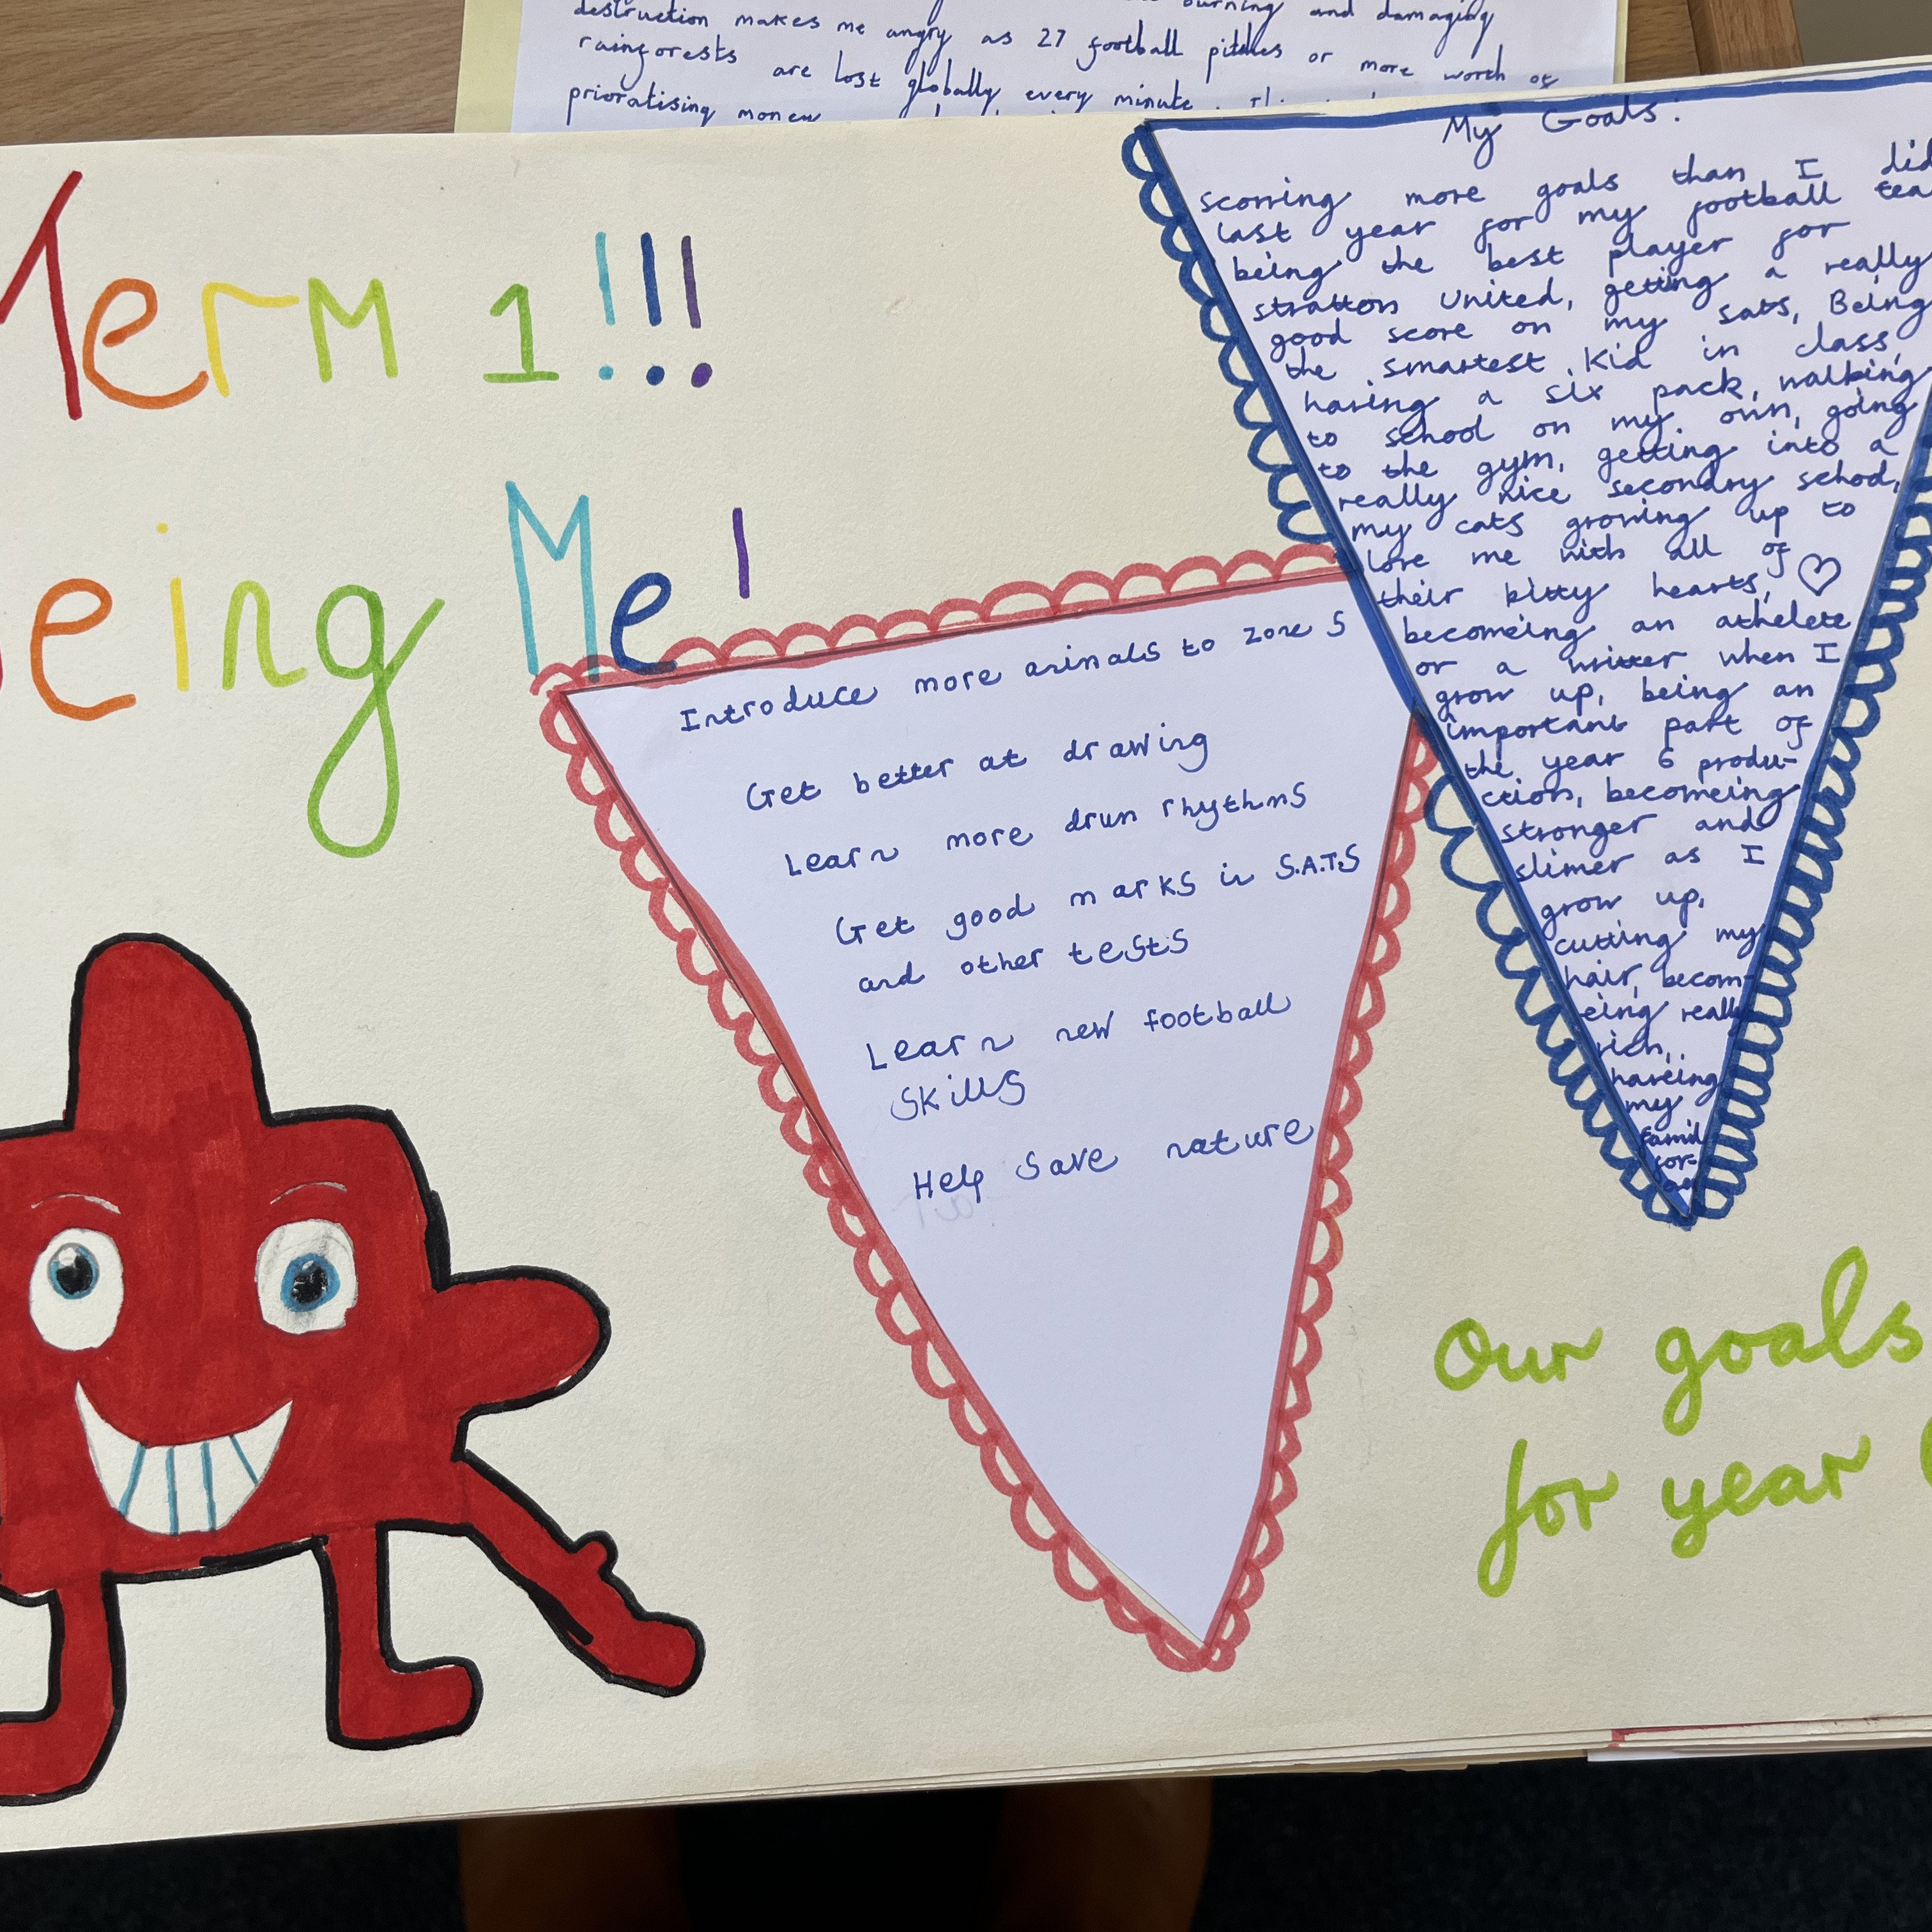 burning and damaging
destruction makes me angry as 27 football pitches or more worth of
rainforests are lost globally every minute.
prioratising money
Term 1!!!
Being Me!
My Goals:
scorring more goals than I did
last year for my football tea
being the best player for
stratton United, getting a really
good score on my sats, Being
the smartest kid in class,
having a six pack, walking
to school on my own, going
to the gym, getting into a
really nice secondry school,
my cats growing up to
love me with all of
their kitty hearts, ♡
becomeing an athelete
or a writter when I
grow up, being an
important part of
the year 6 produ-
ction, becomeing
stronger and
slimer as I
grow up,
cutting my
hair, becom-
eing really
rich,
haveing
my
famil
for-
Introduce more animals to zone 5
Get better at drawing
Learn more drum rhythms
Get good marks in S.A.T.S
and other tests
Learn new football
skills
Help save nature
Our goals
for year